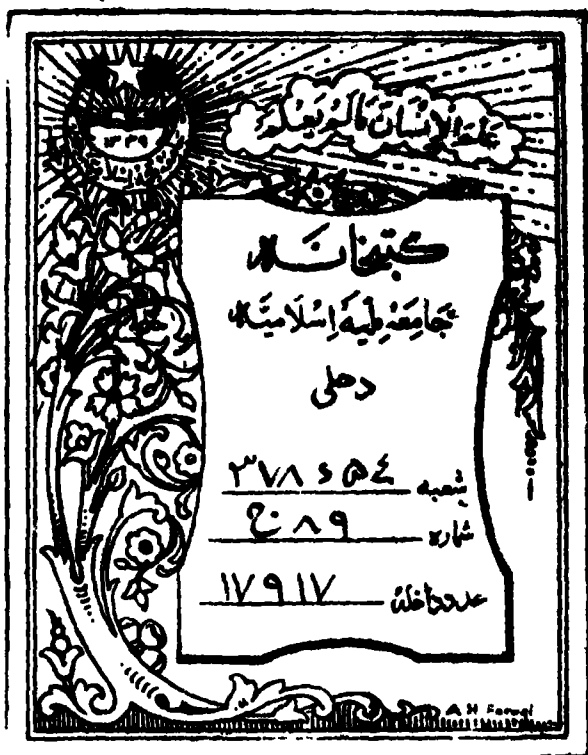 ۱۳۳۹
عَلَّمَ الْاِنْسَانَ مَالَمْ یَعْلَمْ
کتبخانہ
جَامِعَہ مِلِّیَہ اِسْلَامِیَہ
دهلی
شعبہ ۳۷۸ ء ۵۴
شمارہ ۸۹ ج
عدد داخلہ ۱۷۹۱۷
A H Faruqi